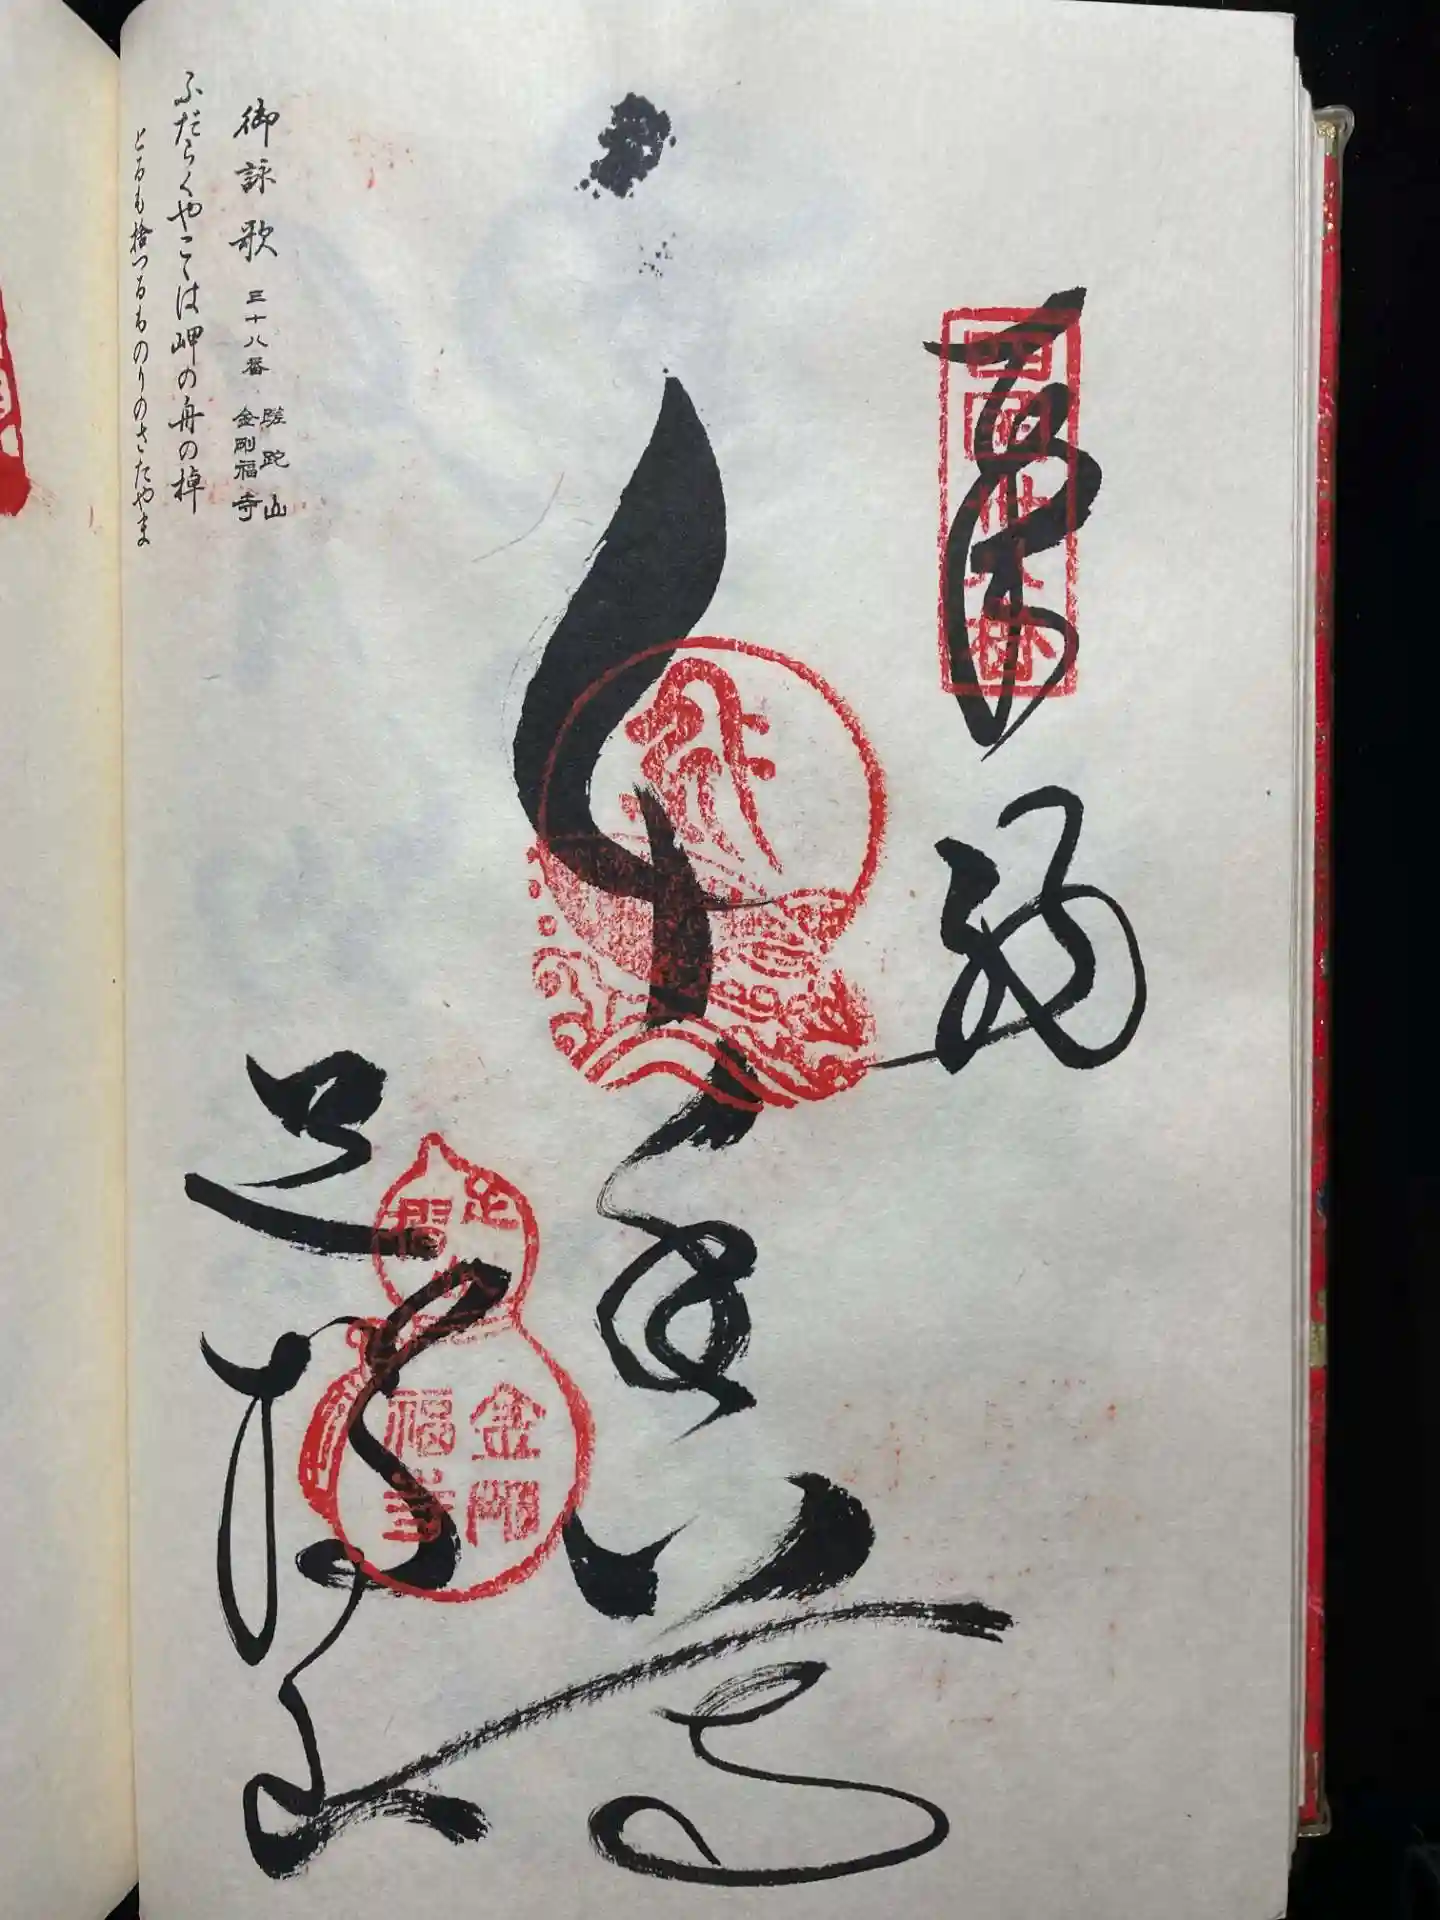 奉納
千手
足摺山
金剛福寺
御詠歌 三十八番 蹉跎山 金剛福寺
ふだらくやこゝは岬の舟の棹
とるも捨つるものりのさたやま